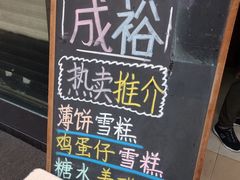 成裕
热卖推介
薄饼雪糕
鸡蛋仔雪糕
糖水